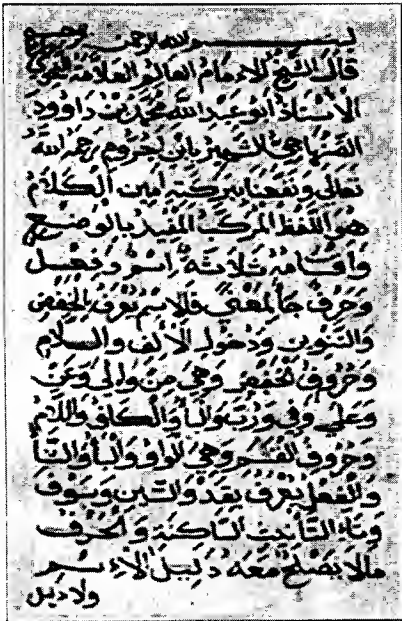 بسم الله الرحمن الرحيم
قال الشيخ الامام العالم العلامة النحوي
الأستاذ أبو عبد الله محمد بن داوود
الصنهاجي الشهير بابن اجروم رحمه الله
تعالى ونفعنا ببركته آمين الكلام
هو اللفظ المركب المفيد بالوضع
وأقسامه ثلاثة اسم وفعل
وحرف جاء لمعنى فالاسم يعرف بالخفض
والتنوين ودخول الألف واللام
وحروف الخفض وهي من وإلى وعن
وعلى وفي ورب والباء والكاف واللام
وحروف القسم وهي الواو والباء والتاء
والفعل يعرف بقد والسين وسوف
وتاء التأنيث الساكنة والحرف
ما لا يصلح معه دليل الاسم
ولا دليل